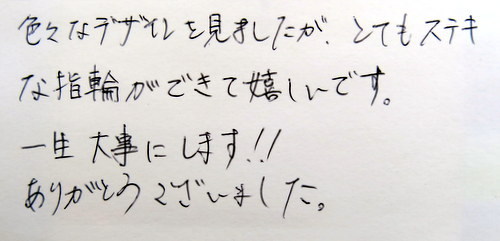 色々なデザインを見ましたが、とてもステキ
な指輪ができて嬉しいです。
一生大事にします!!
ありがとうございました。